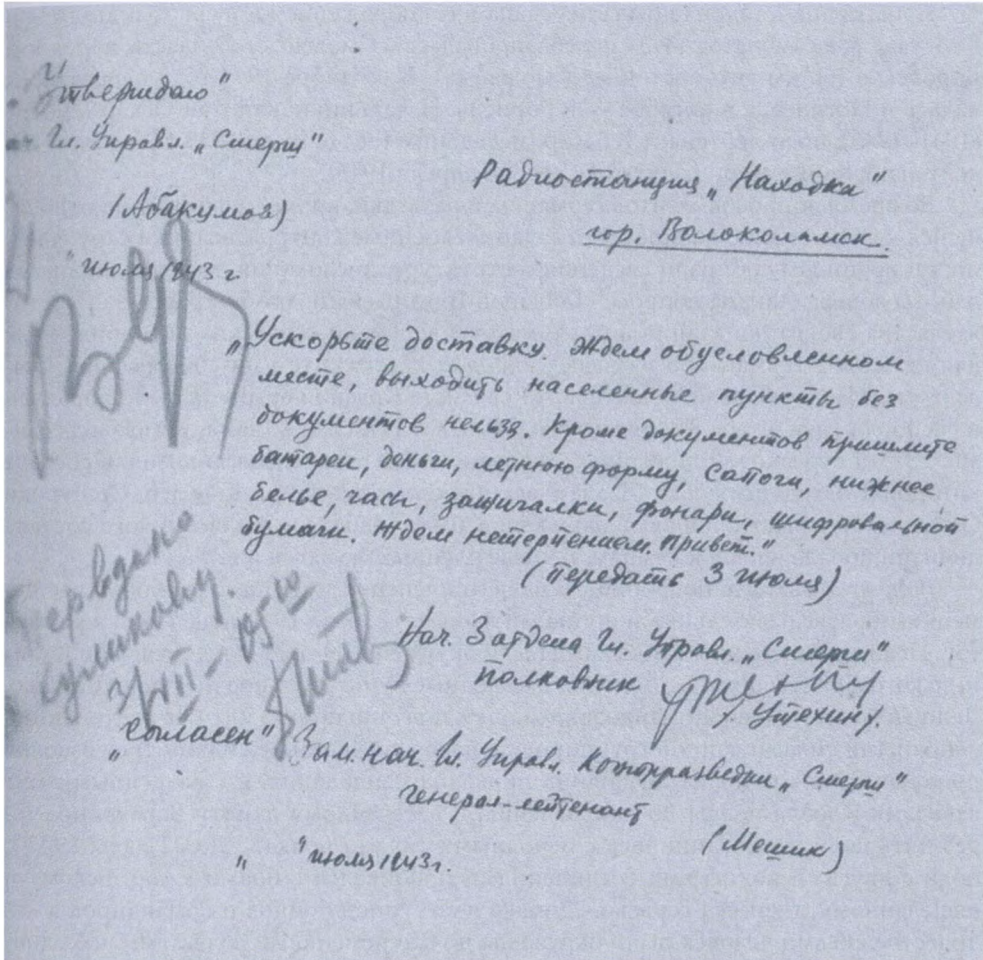 "Утверждаю"
Гл. Управл. „Смерш"
(Абакумов)
" июля 1943 г
Радиостанция „Находка"
гор. Волоколамск.
„Ускорьте доставку. Ждем обусловленном
месте, выходить населенные пункты без
документов нельзя. Кроме документов пришлите
батареи, деньги, летнюю форму, сапоги, нижнее
белье, часы, зажигалки, фонари, шифровальной
бумаги. Ждем нетерпением. Привет."
(передать 3 июля)
Передано
Сумикову.
3/VII - 05 10
Нач. 3 отдела Гл. Управл. „Смерш"
Полковник
/Утехин/.
„Согласен" Зам. нач. Гл. Управл. Контрразведки „Смерш"
генерал-лейтенант
(Мешик)
„ " июля 1943 г.